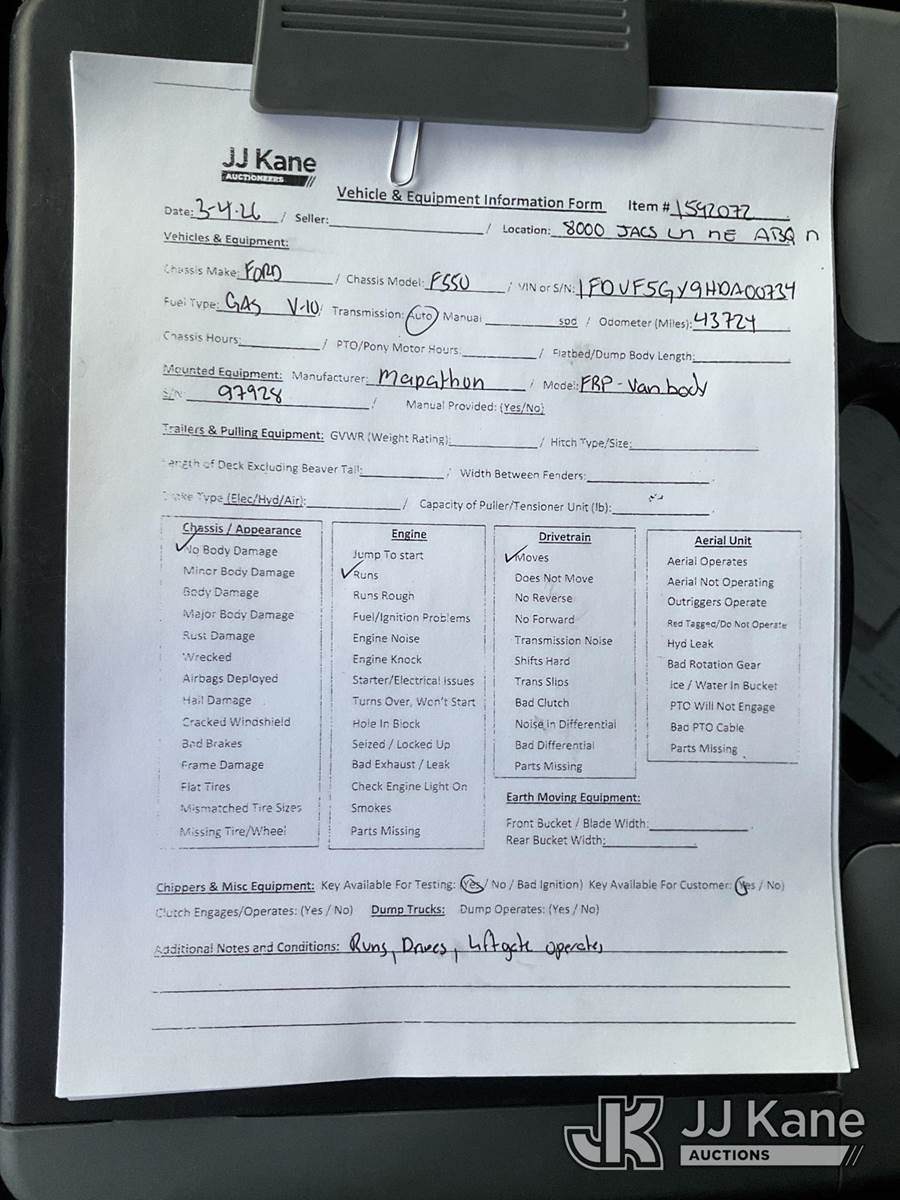 JJ Kane
AUCTIONEERS
Vehicle & Equipment Information Form Item # 1592072
Date: 3-4-26 / Seller: / Location: 8000 JACS Ln NE ABQ n
Vehicles & Equipment:
Chassis Make: FORD / Chassis Model: F550 / VIN or S/N: 1FDUF5GY9HDA00734
Fuel Type: GAS V-10 / Transmission: Auto / Manual spd / Odometer (Miles): 43724
Chassis Hours: / PTO/Pony Motor Hours: / Flatbed/Dump Body Length:
Mounted Equipment: Manufacturer: Marathon / Model: FRP-Van body
S/N: 97928 / Manual Provided: (Yes/No)
Trailers & Pulling Equipment: GVWR (Weight Rating): / Hitch Type/Size:
Length of Deck Excluding Beaver Tail: / Width Between Fenders:
Brake Type (Elec/Hyd/Air): / Capacity of Puller/Tensioner Unit (lb):
Chassis / Appearance
No Body Damage
Minor Body Damage
Body Damage
Major Body Damage
Rust Damage
Wrecked
Airbags Deployed
Hail Damage
Cracked Windshield
Bad Brakes
Frame Damage
Flat Tires
Mismatched Tire Sizes
Missing Tire/Wheel
Engine
Jump To start
Runs
Runs Rough
Fuel/Ignition Problems
Engine Noise
Engine Knock
Starter/Electrical issues
Turns Over, Won't Start
Hole In Block
Seized / Locked Up
Bad Exhaust / Leak
Check Engine Light On
Smokes
Parts Missing
Drivetrain
Moves
Does Not Move
No Reverse
No Forward
Transmission Noise
Shifts Hard
Trans Slips
Bad Clutch
Noise in Differential
Bad Differential
Parts Missing
Aerial Unit
Aerial Operates
Aerial Not Operating
Outriggers Operate
Red Tagged/Do Not Operate
Hyd Leak
Bad Rotation Gear
Ice / Water In Bucket
PTO Will Not Engage
Bad PTO Cable
Parts Missing
Earth Moving Equipment:
Front Bucket / Blade Width:
Rear Bucket Width:
Chippers & Misc Equipment: Key Available For Testing: (Yes / No / Bad Ignition) Key Available For Customer: (Yes / No)
Clutch Engages/Operates: (Yes / No) Dump Trucks: Dump Operates: (Yes / No)
Additional Notes and Conditions: Runs, Drives, Liftgate operates
JK JJ Kane
AUCTIONS